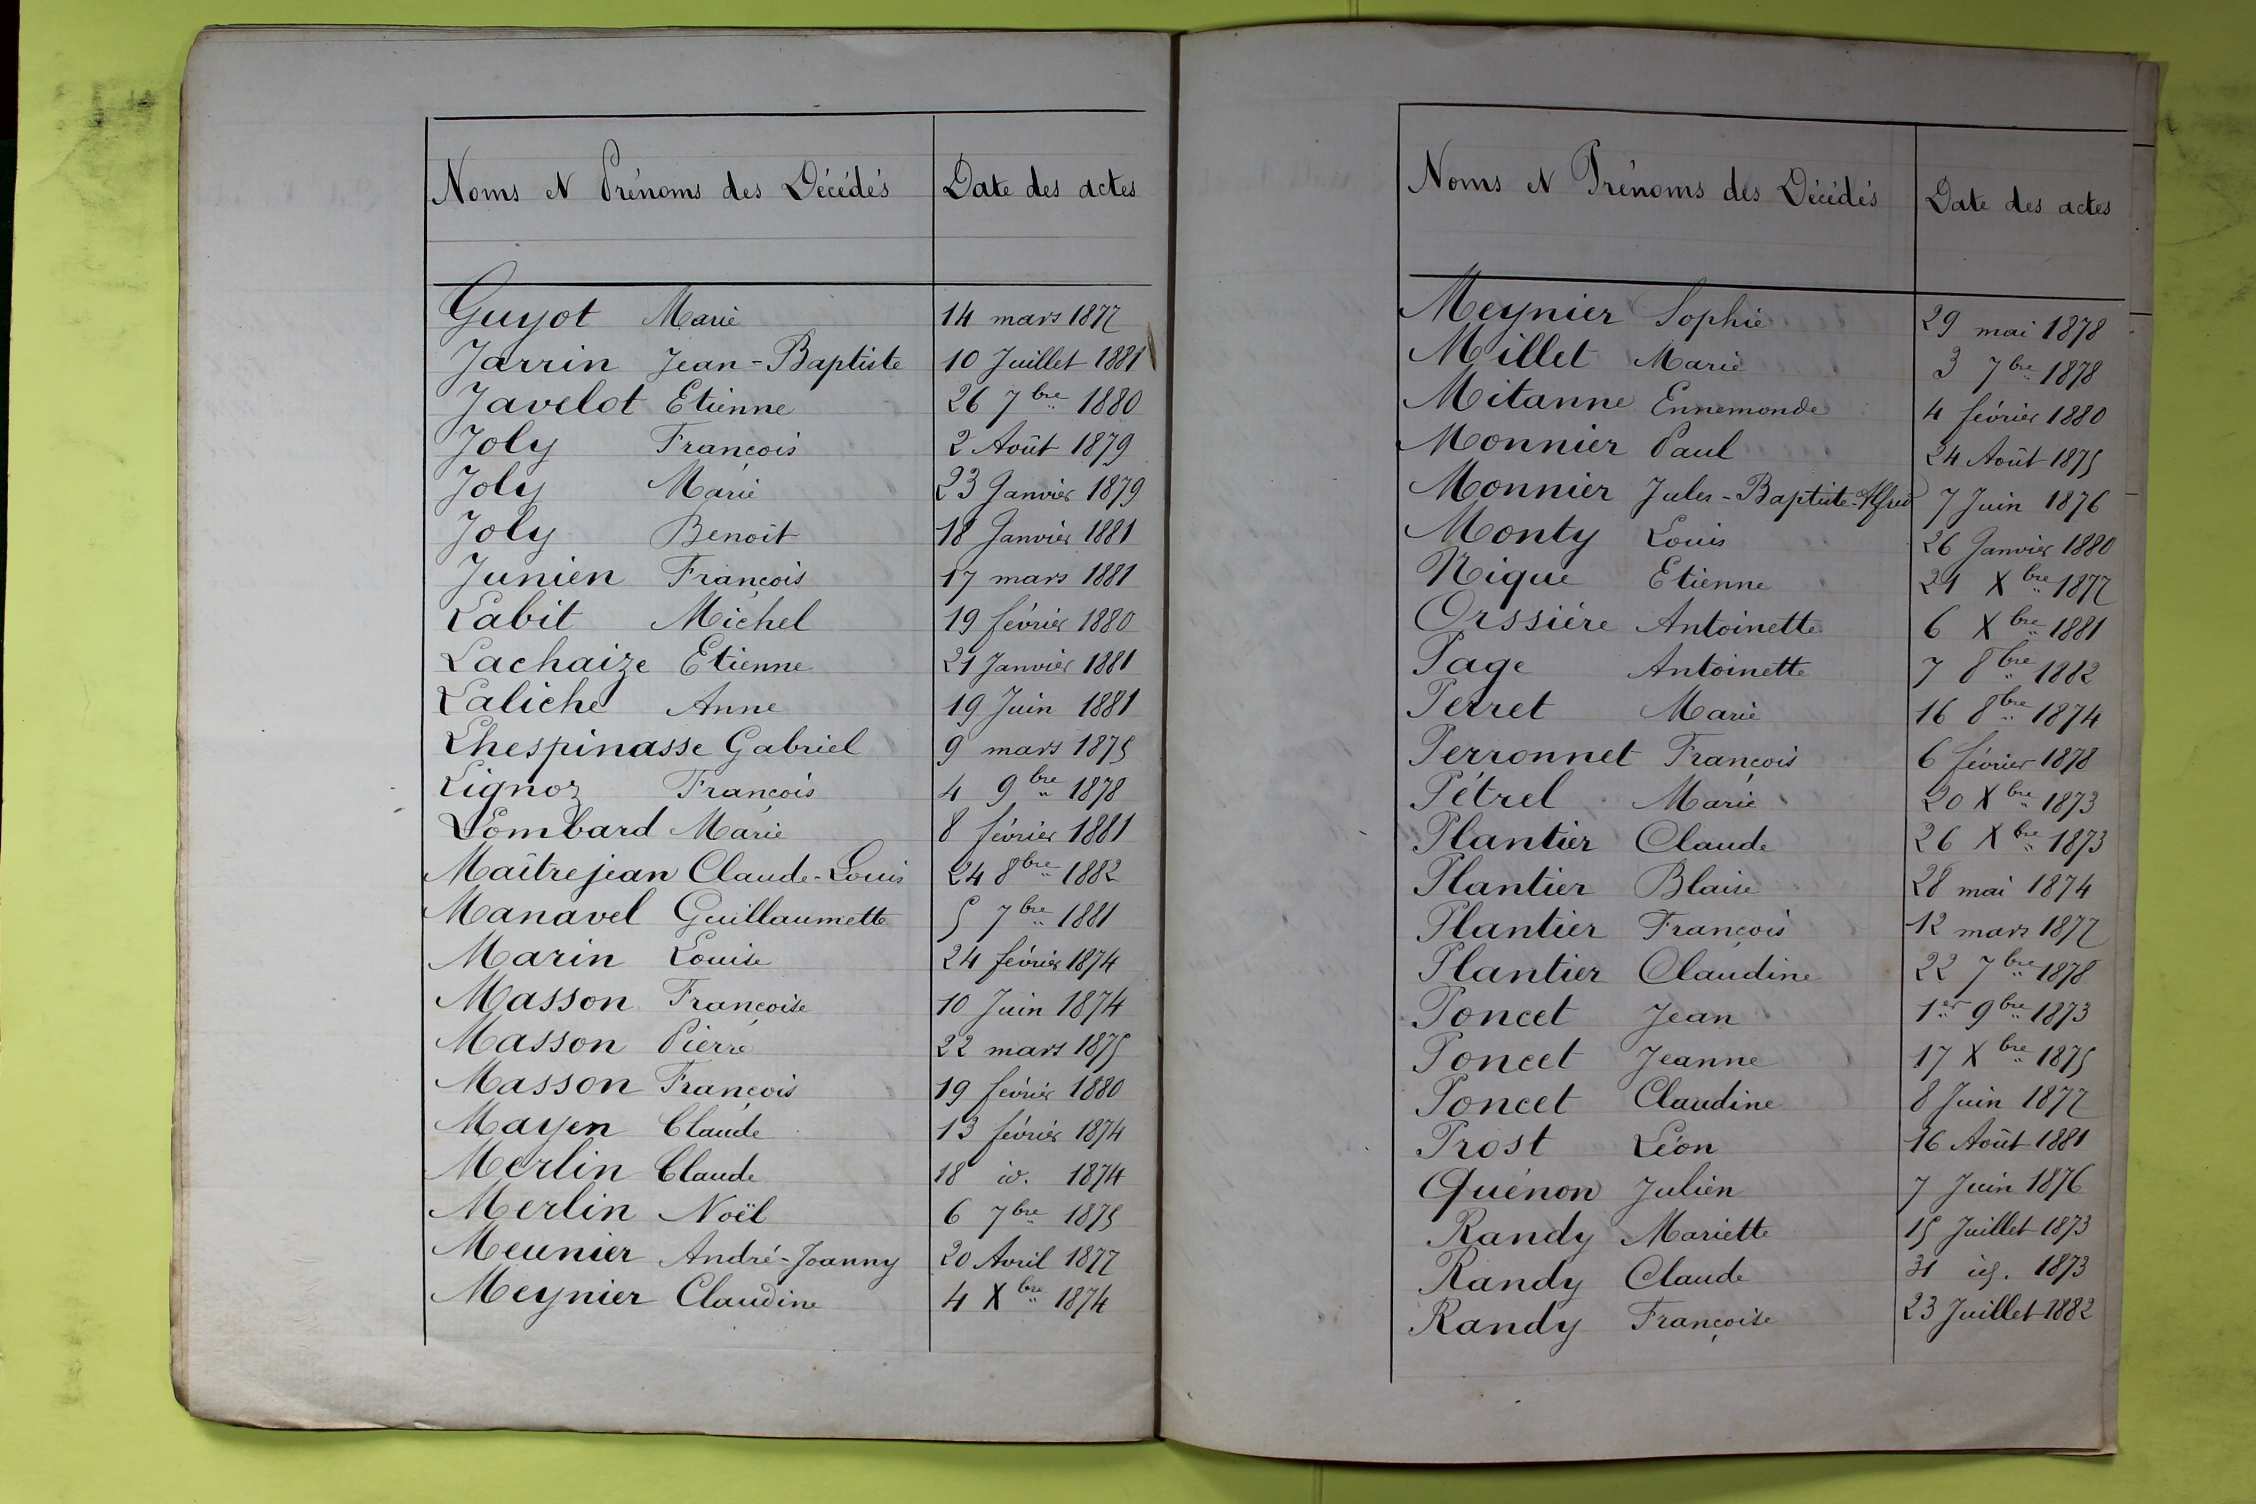 Noms et Prénoms des Décédés Date des actes
Guyot Marie 14 mars 1877
Jarrin Jean-Baptiste 10 Juillet 1881
Javelot Etienne 26 7bre 1880
Joly François 2 Août 1879
Joly Marie 23 Janvier 1879
Joly Benoit 18 Janvier 1881
Junien François 17 mars 1881
Labit Michel 19 février 1880
Lachaize Etienne 21 Janvier 1881
Laliche Anne 19 Juin 1881
Lhespinasse Gabriel 9 mars 1875
Lignoz François 4 9bre 1878
Lombard Marie 8 février 1881
Maîtrejean Claude-Louis 24 8bre 1882
Manavel Guillaumette 5 7bre 1881
Marin Louise 24 février 1874
Masson Françoise 10 Juin 1874
Masson Pierre 22 mars 1875
Masson François 19 février 1880
Mayen Claude 13 février 1874
Merlin Claude 18 id. 1874
Merlin Noël 6 7bre 1875
Meunier André-Joanny 20 Avril 1877
Meynier Claudine 4 Xbre 1874
Noms et Prénoms des Décédés Date des actes
Meynier Sophie 29 mai 1878
Millet Marie 3 7bre 1878
Mitanne Ennemonde 4 février 1880
Monnier Paul 24 Août 1875
Monnier Jules-Baptiste-Alfred 7 Juin 1876
Monty Louis 26 Janvier 1880
Nique Etienne 21 Xbre 1877
Orssiére Antoinette 6 Xbre 1881
Page Antoinette 7 8bre 1882
Perret Marie 16 8bre 1874
Perronnet François 6 février 1878
Pétrel Marie 20 Xbre 1873
Plantier Claude 26 Xbre 1873
Plantier Blaise 28 mai 1874
Plantier François 12 mars 1877
Plantier Claudine 22 7bre 1878
Poncet Jean 1er 9bre 1873
Poncet Jeanne 17 Xbre 1875
Poncet Claudine 8 Juin 1877
Prost Léon 16 Août 1881
Quénon Julien 7 Juin 1876
Randy Mariette 15 Juillet 1873
Randy Claude 31 id. 1873
Randy Françoise 23 Juillet 1882